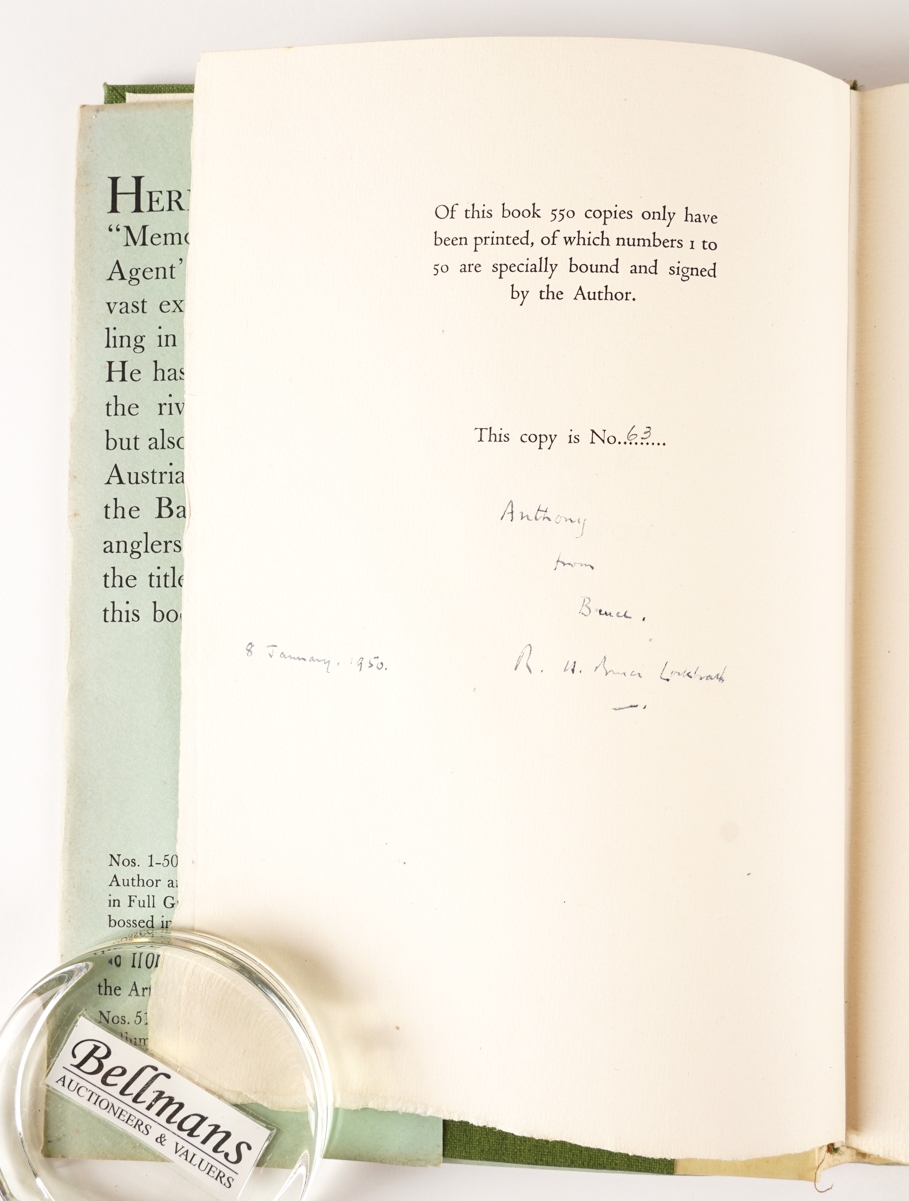 HER
“Memo
Agent’
vast ex
ling in
He has
the riv
but also
Austria
the Ba
anglers
the title
this bo
Nos. 1-50
Author a
in Full G
bossed in
the Ar
Nos. 51
Of this book 550 copies only have
been printed, of which numbers 1 to
50 are specially bound and signed
by the Author.
This copy is No..63....
Anthony
from
Bruce.
8 January. 1950.
R. H. Bruce Lockhart
Bellmans
AUCTIONEERS & VALUERS